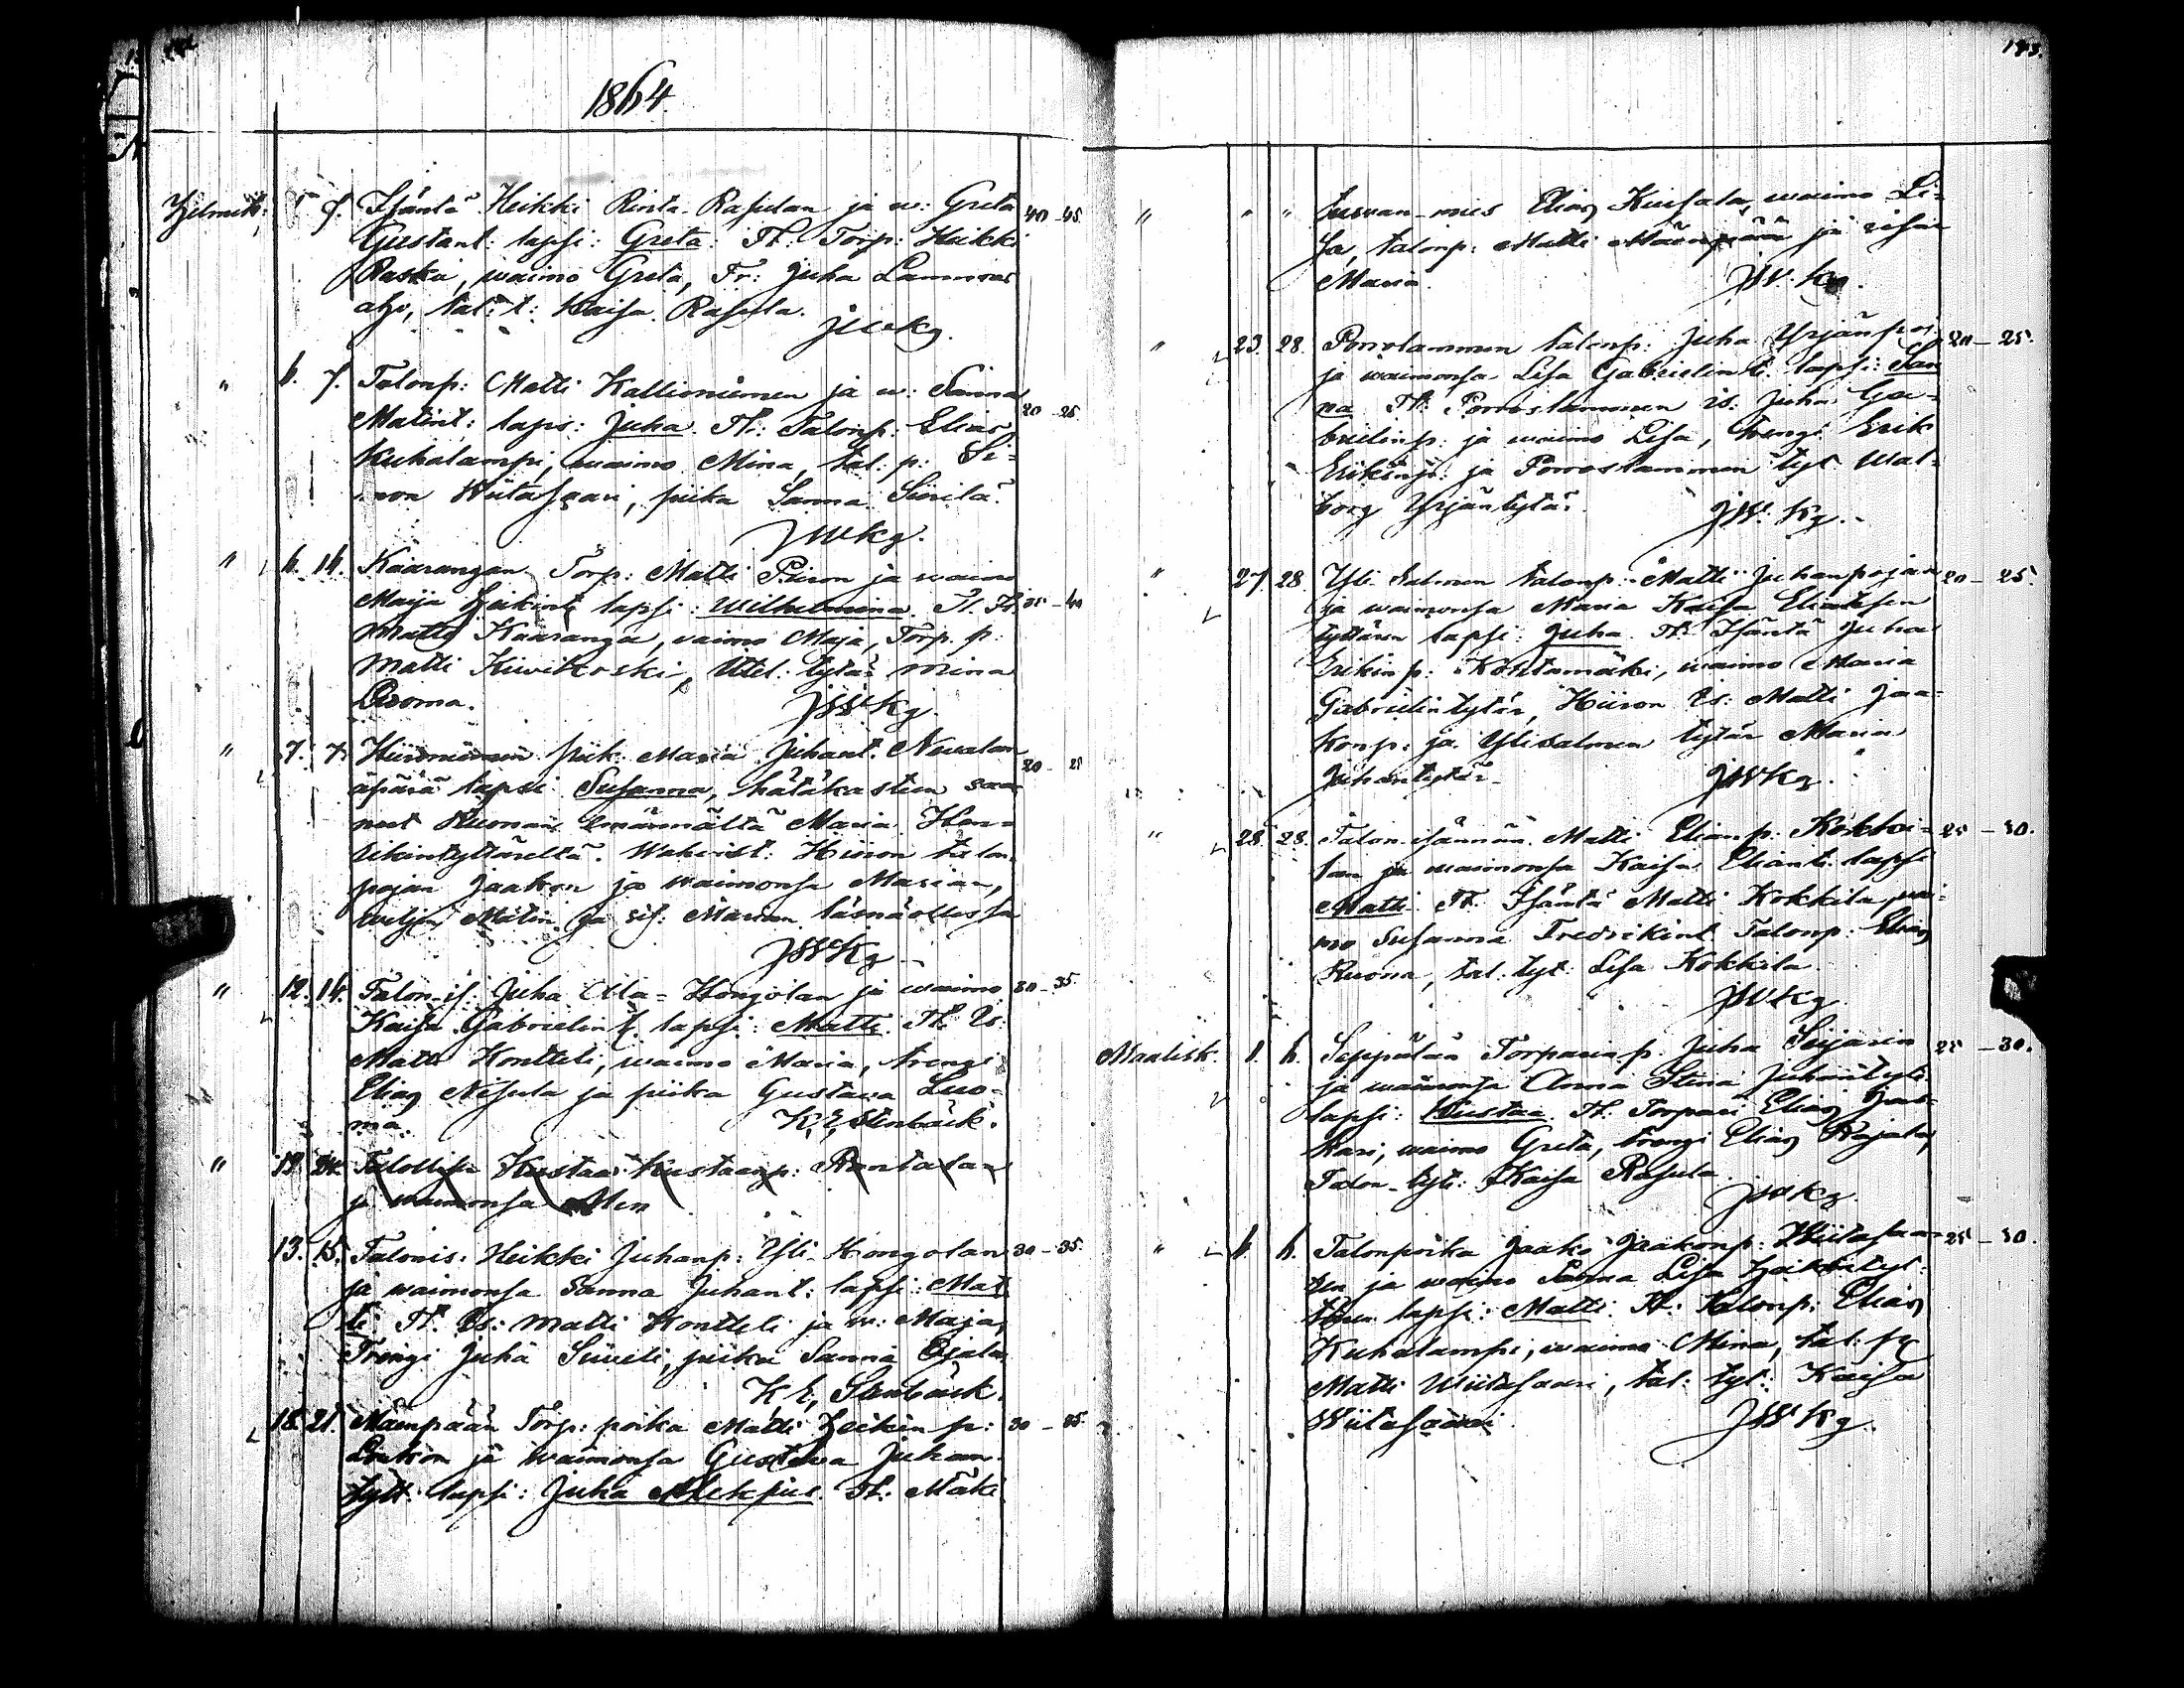 1864.
Helmik: 5 7. Isäntä Heikki Rinta-Rasulan ja w: Greta 40-45
Gustant: lapsi: Greta. Tt: Torp: Heikki
Rasku, waimo Greta, Tr: Juha Lamminaho, tal: t: Kaisa Rasula.
JWKg.
" 6. 7. Talonp: Matti Kallioniemen ja w: Sanna 20-25
Matint: laps: Juha. Tt: Talonp: Elias
Kuhalampi, waimo Mina, tal: p: Si=
mon Wiitasaari, piika Sanna Sirilä.
JWKg.
" 6. 14. Kaarangan Torp: Matti Piiron ja waimo
Maija Heikint: lapsi: Wilhelmina. Tt. 35-40
Matti Kaaranga, waimo Maja, Torp. p:
Matti Kiwikoski, Ittel: tytär Mina
Luoma. JWKg.
" 7. 7. Hiironniemen piik: Maria Juhant. Newalan 20-25
äpärä lapsi Susanna, hätäkasteen saa
nut Ruonan emännältä Maria Hen=
rikintyttäreltä. Wahwist: Hiiron talon
pojan Jaakon ja waimonsa Marian,
weljen Matin ja sis: Marian läsnäollessa
JWKg
" 12. 14. Talon-is: Juha Ala-Hongolan ja waimo 30-35.
Kaisa Gabrielin t. lapsi: Matti. Tt. Is:
Matti Kontteli, waimo Maria, trengi
Elias Nisula ja piika Gustava Luo=
ma. K. E. Stenbäck.
" 13. 24. Talollisen Kustaa Kustaanp: Rantalan
ja waimonsa
13. 15. Talonis: Heikki Juhanp: Yli-Hongolan 30-35.
ja waimonsa Sanna Juhant: lapsi: Mat
ti. Tt. Is: Matti Kontteli ja w: Maja,
Trengi Juha Siiveli, piika Sanna Ojala
K. E. Stenbäck.
18. 21. Mäenpään Torp: poika Matti Heikin p: 30-35.
ja waimonsa Gustawa Juhan
tytt. lapsi: Juha Aleksius. Tt: Mäki
143.
" " " mies Elias Kuisala, waimo Li=
sa, talonp: Matti Mäenpää ja sisar
Maria. JW. Kg.
" 23. 28. Porrolammen talonp: Juha Yrjänpoj. 20-25.
ja waimonsa Lisa Gabrielin t. lapsi: San
na. Tt: Porroslammen is: Juha Ga=
brielinp: ja waimo Lisa, trengi Erik
Erikinp: ja Porroslammen tyt. Wal=
borg Yrjäntytär. JW. Kg.
" 27. 28. Yli Salmen talonp: Matti Juhanpojan 20-25.
ja waimonsa Maria Kaisa Eliaksen
tyttären lapsi: Juha. Tt: Isäntä Juha
Erikin p: Kohtamäki, waimo Maria
Gabrielintytär, Hiiron Is: Matti Jaa=
konp: ja Ylisalmen tytär Maria
Juhantytär. JWKg.
" 28. 28. Talon isännän Matti Elianp: Kokki= 25-30.
lan ja waimonsa Kaisa Eliant: lapsi
Matti. Tt. Isäntä Matti Kokkila, wai=
mo Susanna Fredrikint. Talonp: Elias
Ruona, tal. tyt: Lisa Kokkila.
JWKg
Maalisk. 1. 6. Seppälän Torparin p. Juha Seijarin 25-30.
ja waimonsa Anna Stina Juhantyt.
lapsi: Kustaa. Tt. Torpari Elias
waimo Greta, trengi Elias Rajala,
Talon-tyt: Kaisa Rasula.
JWKg
" 6. 6. Talonpoika Jaako Jaakonp: Wiitasaa= 25-30.
ren ja waimo Sanna Lisa Heikintyt:
lapsi: Matti. Tt: Talonp: Elias
Kuhalampi, waimo Mina, tal: p:
Matti Wiitasaari, tal: tyt: Kaisa
Wiitasaari. JWKg.